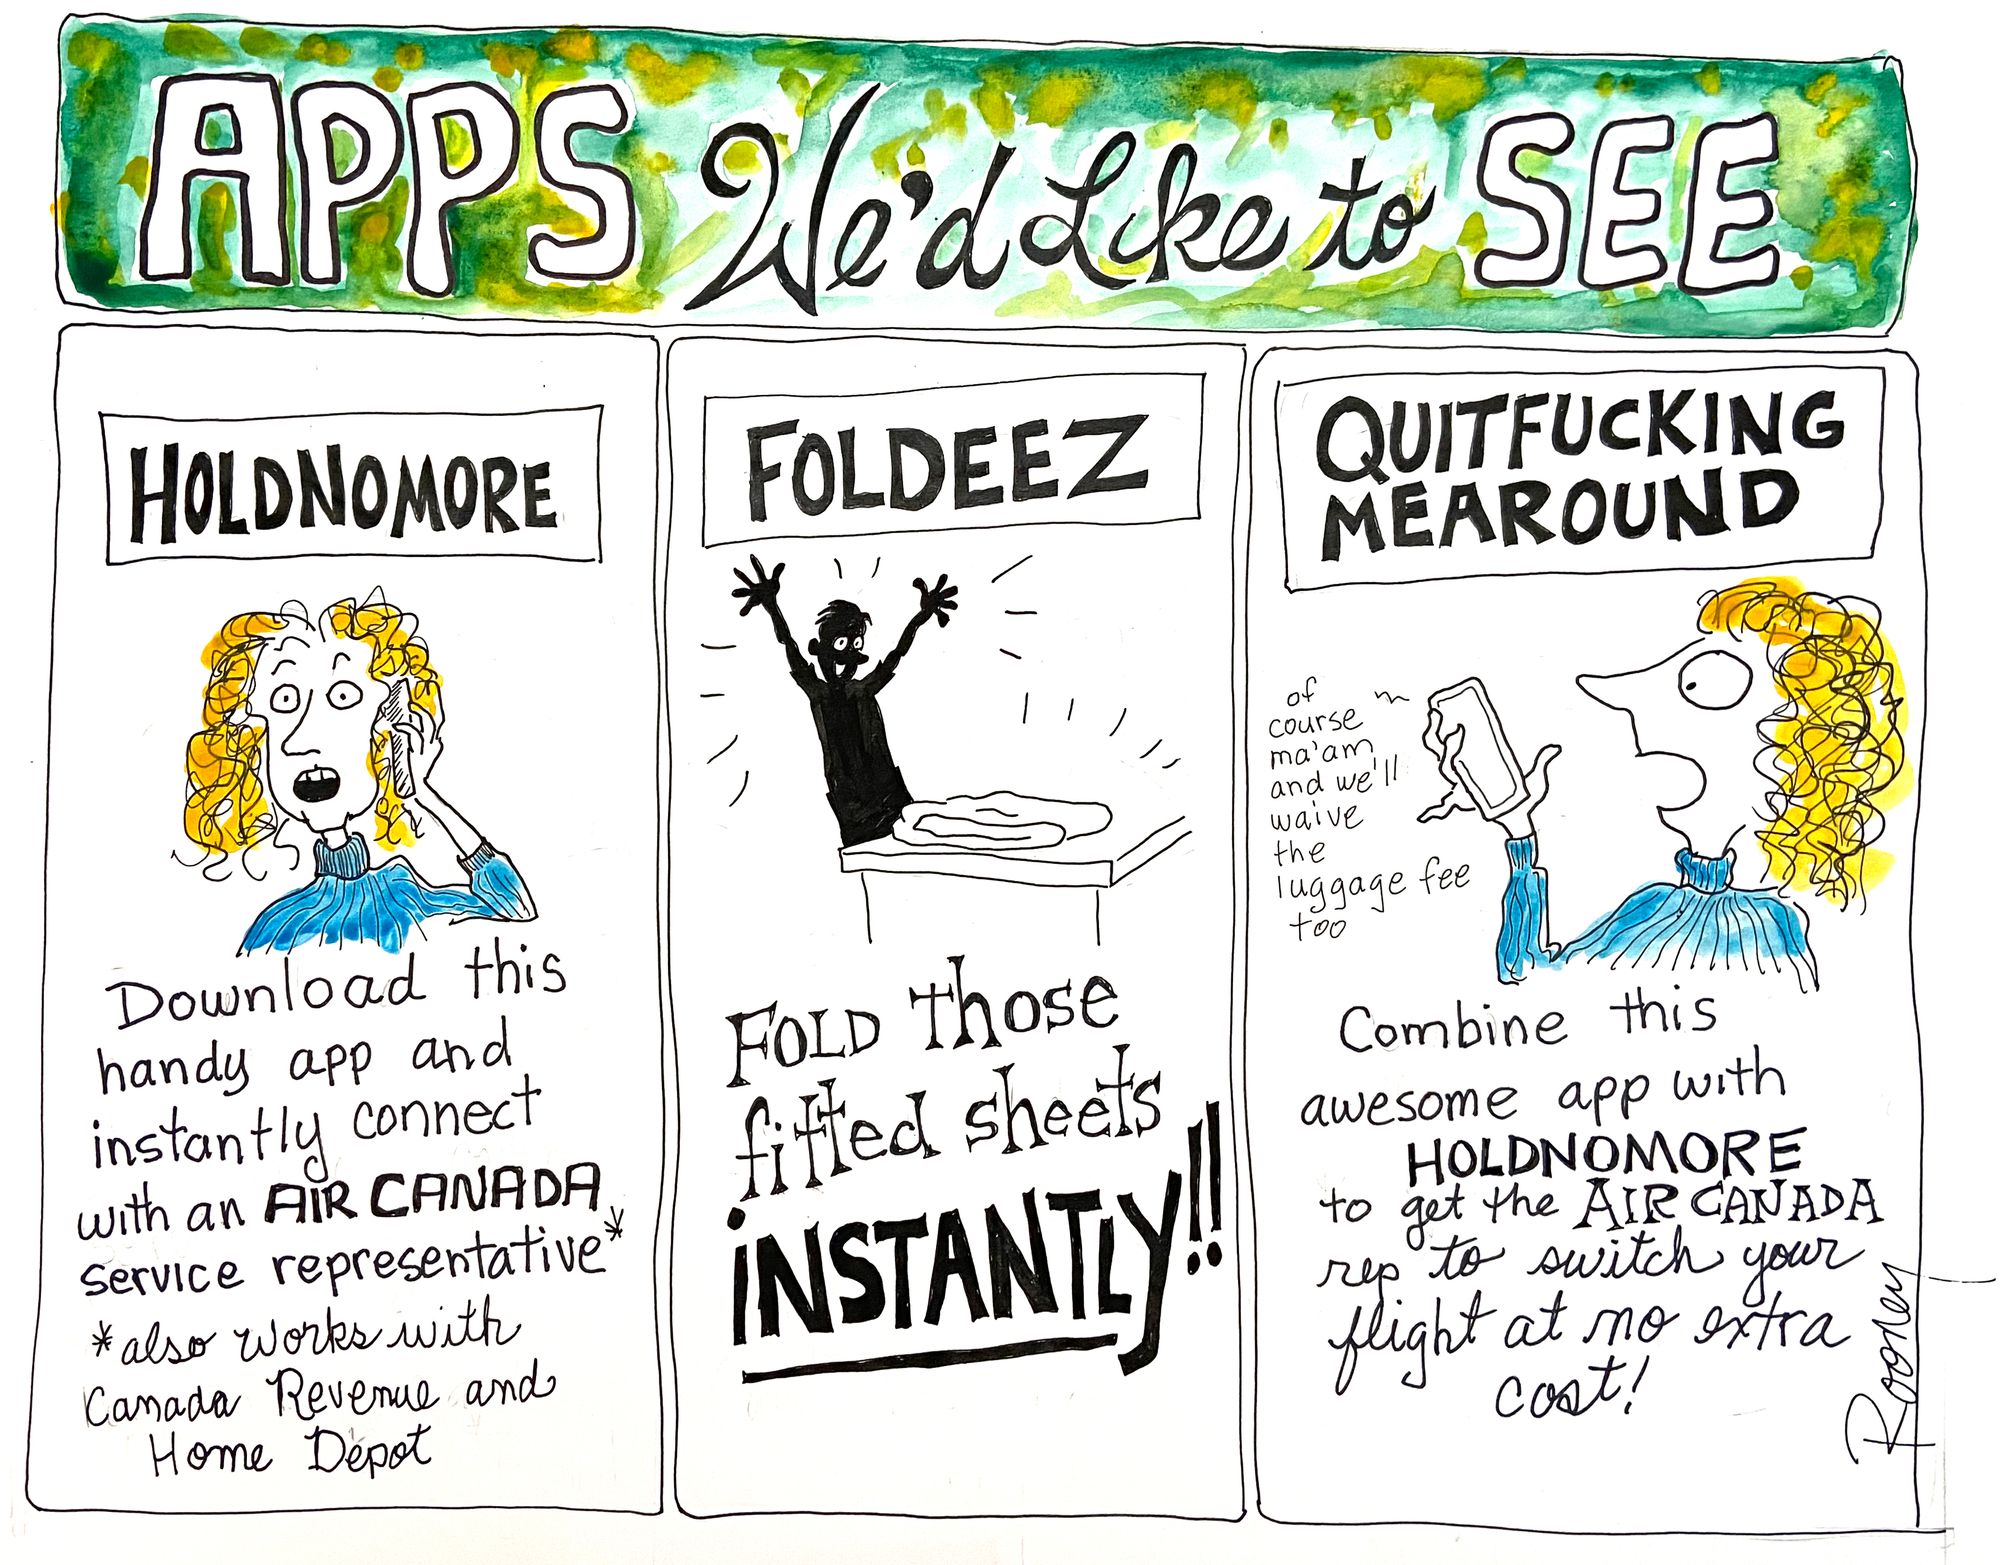 APPS We'd Like to SEE
HOLDNOMORE
Download this
handy app and
instantly connect
with an AIR CANADA
service representative*
*also works with
Canada Revenue and
Home Dépot
FOLDEEZ
FOLD those
fitted sheets
iNSTANTLy!!
QUITFUCKING
MEAROUND
of
course
ma'am
and we'll
waive
the
luggage fee
too
Combine this
awesome app with
HOLDNOMORE
to get the AIR CANADA
rep to switch your
flight at no extra
cost!
Rooney